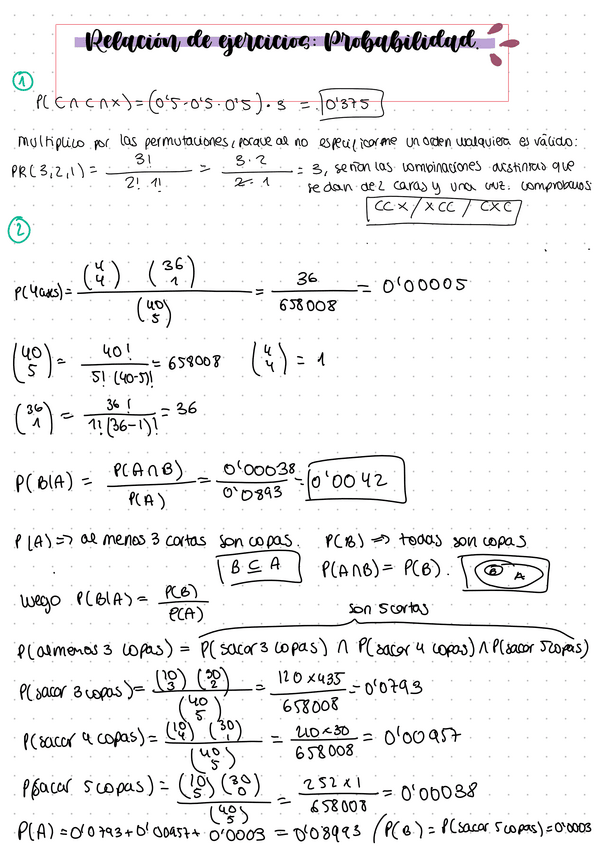 Relación de ejercicios: Probabilidad.
1
P(C∩C∩X)=(0'5·0'5·0'5)·3 = 0'375
multiplico por las permutaciones, porque al no especificarme un orden cualquiera es válido:
PR(3,2,1) = 3! / 2! 1! = 3·2 / 2·1 = 3, serían las combinaciones distintas que
se dan de 2 caras y una cruz. comprobamos
CCX / XCC / CXC
2
P(4 ases) = (4 4) (36 1) / (40 5) = 36 / 658008 = 0'00005
(40 5) = 40! / 5! (40-5)! = 658008 (4 4) = 1
(36 1) = 36! / 1! (36-1)! = 36
P(B|A) = P(A∩B) / P(A) = 0'00038 / 0'0893 = 0'0042
P(A) => al menos 3 cartas son copas. P(B) => todas son copas
B ⊆ A P(A∩B) = P(B). B A
luego P(B|A) = P(B) / P(A)
son 5 cartas
P(almenos 3 copas) = P(sacar 3 copas) ∩ P(sacar 4 copas) ∩ P(sacar 5 copas)
P(sacar 3 copas) = (10 3) (30 2) / (40 5) = 120 x 435 / 658008 = 0'0793
P(sacar 4 copas) = (10 4) (30 1) / (40 5) = 210 x 30 / 658008 = 0'00957
P(sacar 5 copas) = (10 5) (30 0) / (40 5) = 252 x 1 / 658008 = 0'00038
P(A) = 0'0793 + 0'00957 + 0'0003 = 0'08993 / P(B) = P(sacar 5 copas) = 0'0003